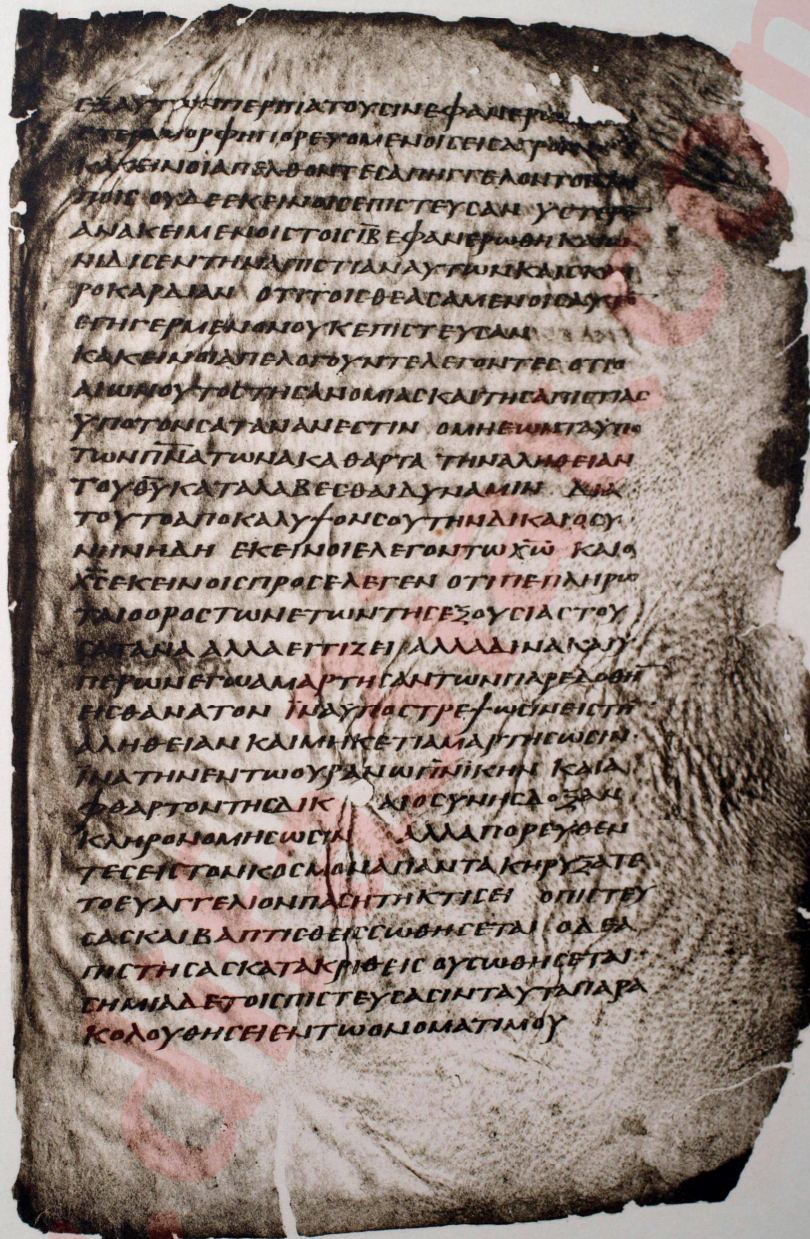 ΕΞΑΥΤΩΝΠΕΡΠΙΑΤΟΥϹΙΝΕΦΑΝΕΡΩ
ΕΤΕΡΑΜΟΡΦΗΠΟΡΕΥΟΜΕΝΟΙϹΕΙϹΑΓΡΟΝ
ΚΑΚΕΙΝΟΙΑΠΕΛΘΟΝΤΕϹΑΠΗΓΓΕΛΟΝΤΟΙϹ
ΠΟΙϹ ΟΥΔΕΕΚΕΙΝΟΙϹΕΠΙϹΤΕΥϹΑΝ ΥϹΤΕΡΟ
ΑΝΑΚΕΙΜΕΝΟΙϹΤΟΙϹΙ̅Α̅ΕΦΑΝΕΡΩΘΗΚΑΙΩ
ΝΙΔΙϹΕΝΤΗΝΑΠΙϹΤΙΑΝΑΥΤΩΝΚΑΙϹΚΛΗ
ΡΟΚΑΡΔΙΑΝ ΟΤΙΤΟΙϹΘΕΑϹΑΜΕΝΟΙϹΑΥΤΟ
ΕΓΗΓΕΡΜΕΝΟΝΟΥΚΕΠΙϹΤΕΥϹΑΝ
ΚΑΚΕΙΝΟΙΑΠΕΛΟΓΟΥΝΤΕΛΕΓΟΝΤΕϹ ΟΤΙΟ
ΑΙΩΝΟΥΤΟϹΤΗϹΑΝΟΜΙΑϹΚΑΙΤΗϹΑΠΙϹΤΙΑϹ
ΥΠΟΤΟΝϹΑΤΑΝΑΝΕϹΤΙΝ ΟΜΗΕΩΝΤΑΥΠΟ
ΤΩΝΠ̅Ν̅ΑΤΩΝΑΚΑΘΑΡΤΑ ΤΗΝΑΛΗΘΕΙΑΝ
ΤΟΥΘ̅Υ̅ΚΑΤΑΛΑΒΕϹΘΑΙΔΥΝΑΜΙΝ ΔΙΑ
ΤΟΥΤΟΑΠΟΚΑΛΥΨΟΝϹΟΥΤΗΝΔΙΚΑΙΟϹΥ
ΝΗΝΗΔΗ ΕΚΕΙΝΟΙΕΛΕΓΟΝΤΩΧ̅Ω̅ ΚΑΙΟ
Χ̅Ϲ̅ΕΚΕΙΝΟΙϹΠΡΟϹΕΛΕΓΕΝ ΟΤΙΠΕΠΛΗΡΩ
ΤΑΙΟΟΡΟϹΤΩΝΕΤΩΝΤΗϹΕΞΟΥϹΙΑϹΤΟΥ
ϹΑΤΑΝΑ ΑΛΛΑΕΓΓΙΖΕΙ ΑΛΛΑΔΙΝΑΚΑΙΥ
ΠΕΡΩΝΕΓΩΑΜΑΡΤΗϹΑΝΤΩΝΠΑΡΕΔΟΘΗ̅
ΕΙϹΘΑΝΑΤΟΝ ΪΝΑΥΠΟϹΤΡΕΨΩϹΙΝΕΙϹΤΗ̅
ΑΛΗΘΕΙΑΝ ΚΑΙΜΗΚΕΤΙΑΜΑΡΤΗϹΩϹΙΝ
ΪΝΑΤΗΝΕΝΤΩΟΥΡΑΝΩΠ̅Ν̅ΙΚΗΝ ΚΑΙΑ
ΦΘΑΡΤΟΝΤΗϹΔΙΚΑΙΟϹΥΝΗϹΔΟΞΑΝ
ΚΛΗΡΟΝΟΜΗϹΩϹΙΝ ΑΛΛΑΠΟΡΕΥΘΕΝ
ΤΕϹΕΙϹΤΟΝΚΟϹΜΟΝΑΠΑΝΤΑΚΗΡΥΞΑΤΕ
ΤΟΕΥΑΓΓΕΛΙΟΝΠΑϹΗΤΗΚΤΙϹΕΙ ΟΠΙϹΤΕΥ
ϹΑϹΚΑΙΒΑΠΤΙϹΘΕΙϹϹΩΘΗϹΕΤΑΙ ΟΔΕΑ
ΠΙϹΤΗϹΑϹΚΑΤΑΚΡΙΘΕΙϹ ΟΥϹΩΘΗϹΕΤΑΙ
ϹΗΜΙΑΔΕΤΟΙϹΠΙϹΤΕΥϹΑϹΙΝΤΑΥΤΑΠΑΡΑ
ΚΟΛΟΥΘΗϹΕΙΕΝΤΩΟΝΟΜΑΤΙΜΟΥ